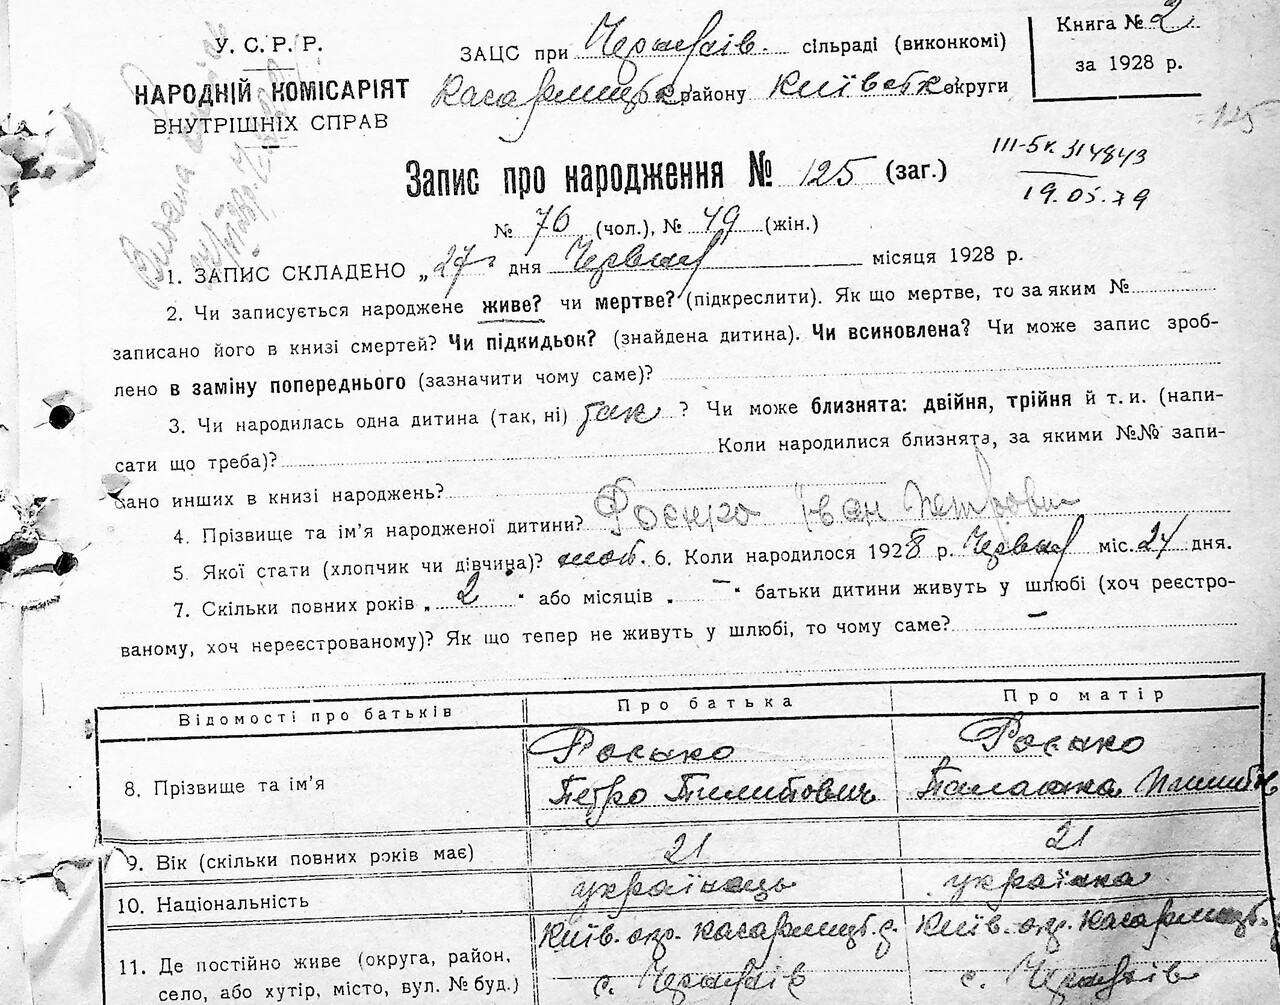 У. С. Р. Р.
НАРОДНІЙ КОМІСАРІЯТ
ВНУТРІШНІХ СПРАВ
ЗАЦС при сільраді (виконкомі)
району Київськ округи
Книга № 2
за 1928 р.
125
III-БК 314843
19.05.79
Запис про народження № 125 (заг.)
№ 76 (чол.), № 49 (жін.)
1. ЗАПИС СКЛАДЕНО „27" дня Червня місяця 1928 р.
2. Чи записується народжене живе? чи мертве? (підкреслити). Як що мертве, то за яким №
записано його в книзі смертей? Чи підкидьок? (знайдена дитина). Чи всиновлена? Чи може запис зроб-
лено в заміну попереднього (зазначити чому саме)?
3. Чи народилась одна дитина (так, ні) так ? Чи може близнята: двійня, трійня й т. и. (напи-
сати що треба)? Коли народилися близнята, за якими №№ запи-
сано инших в книзі народжень?
4. Прізвище та ім'я народженої дитини? Фоєнко Іван Петрович
5. Якої стати (хлопчик чи дівчина)? 6. Коли народилося 1928 р. Червня міс. 24 дня.
7. Скільки повних років „ 2 " або місяців „ – " батьки дитини живуть у шлюбі (хоч реєстро-
ваному, хоч нереєстрованому)? Як що тепер не живуть у шлюбі, то чому саме? –
Відомості про батьків Про батька Про матір
8. Прізвище та ім'я
Фоєнко Фоєнко
Петро Пилипович Палажка
9. Вік (скільки повних років має) 21 21
10. Національність українець українка
11. Де постійно живе (округа, район,
село, або хутір, місто, вул. № буд.)
Київ. окр. Київ. окр.
с. с.